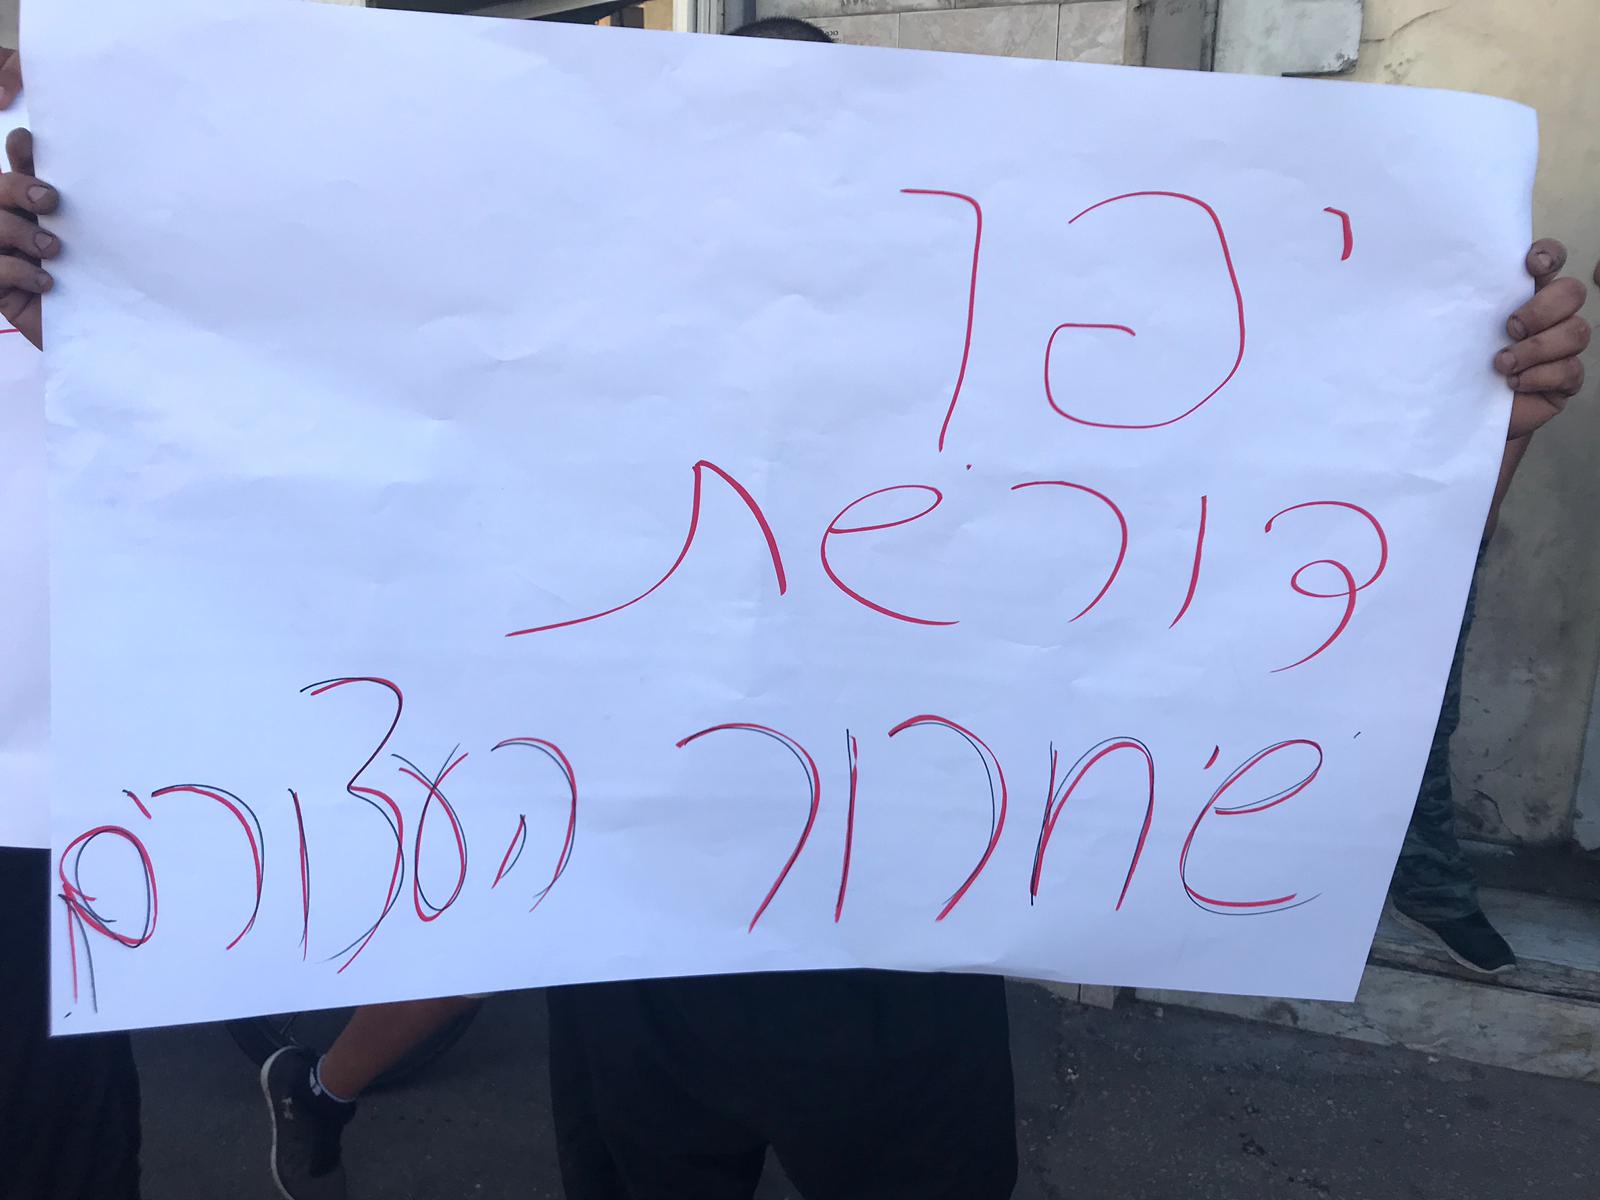 יפו
דורשת
שחרור העצורים